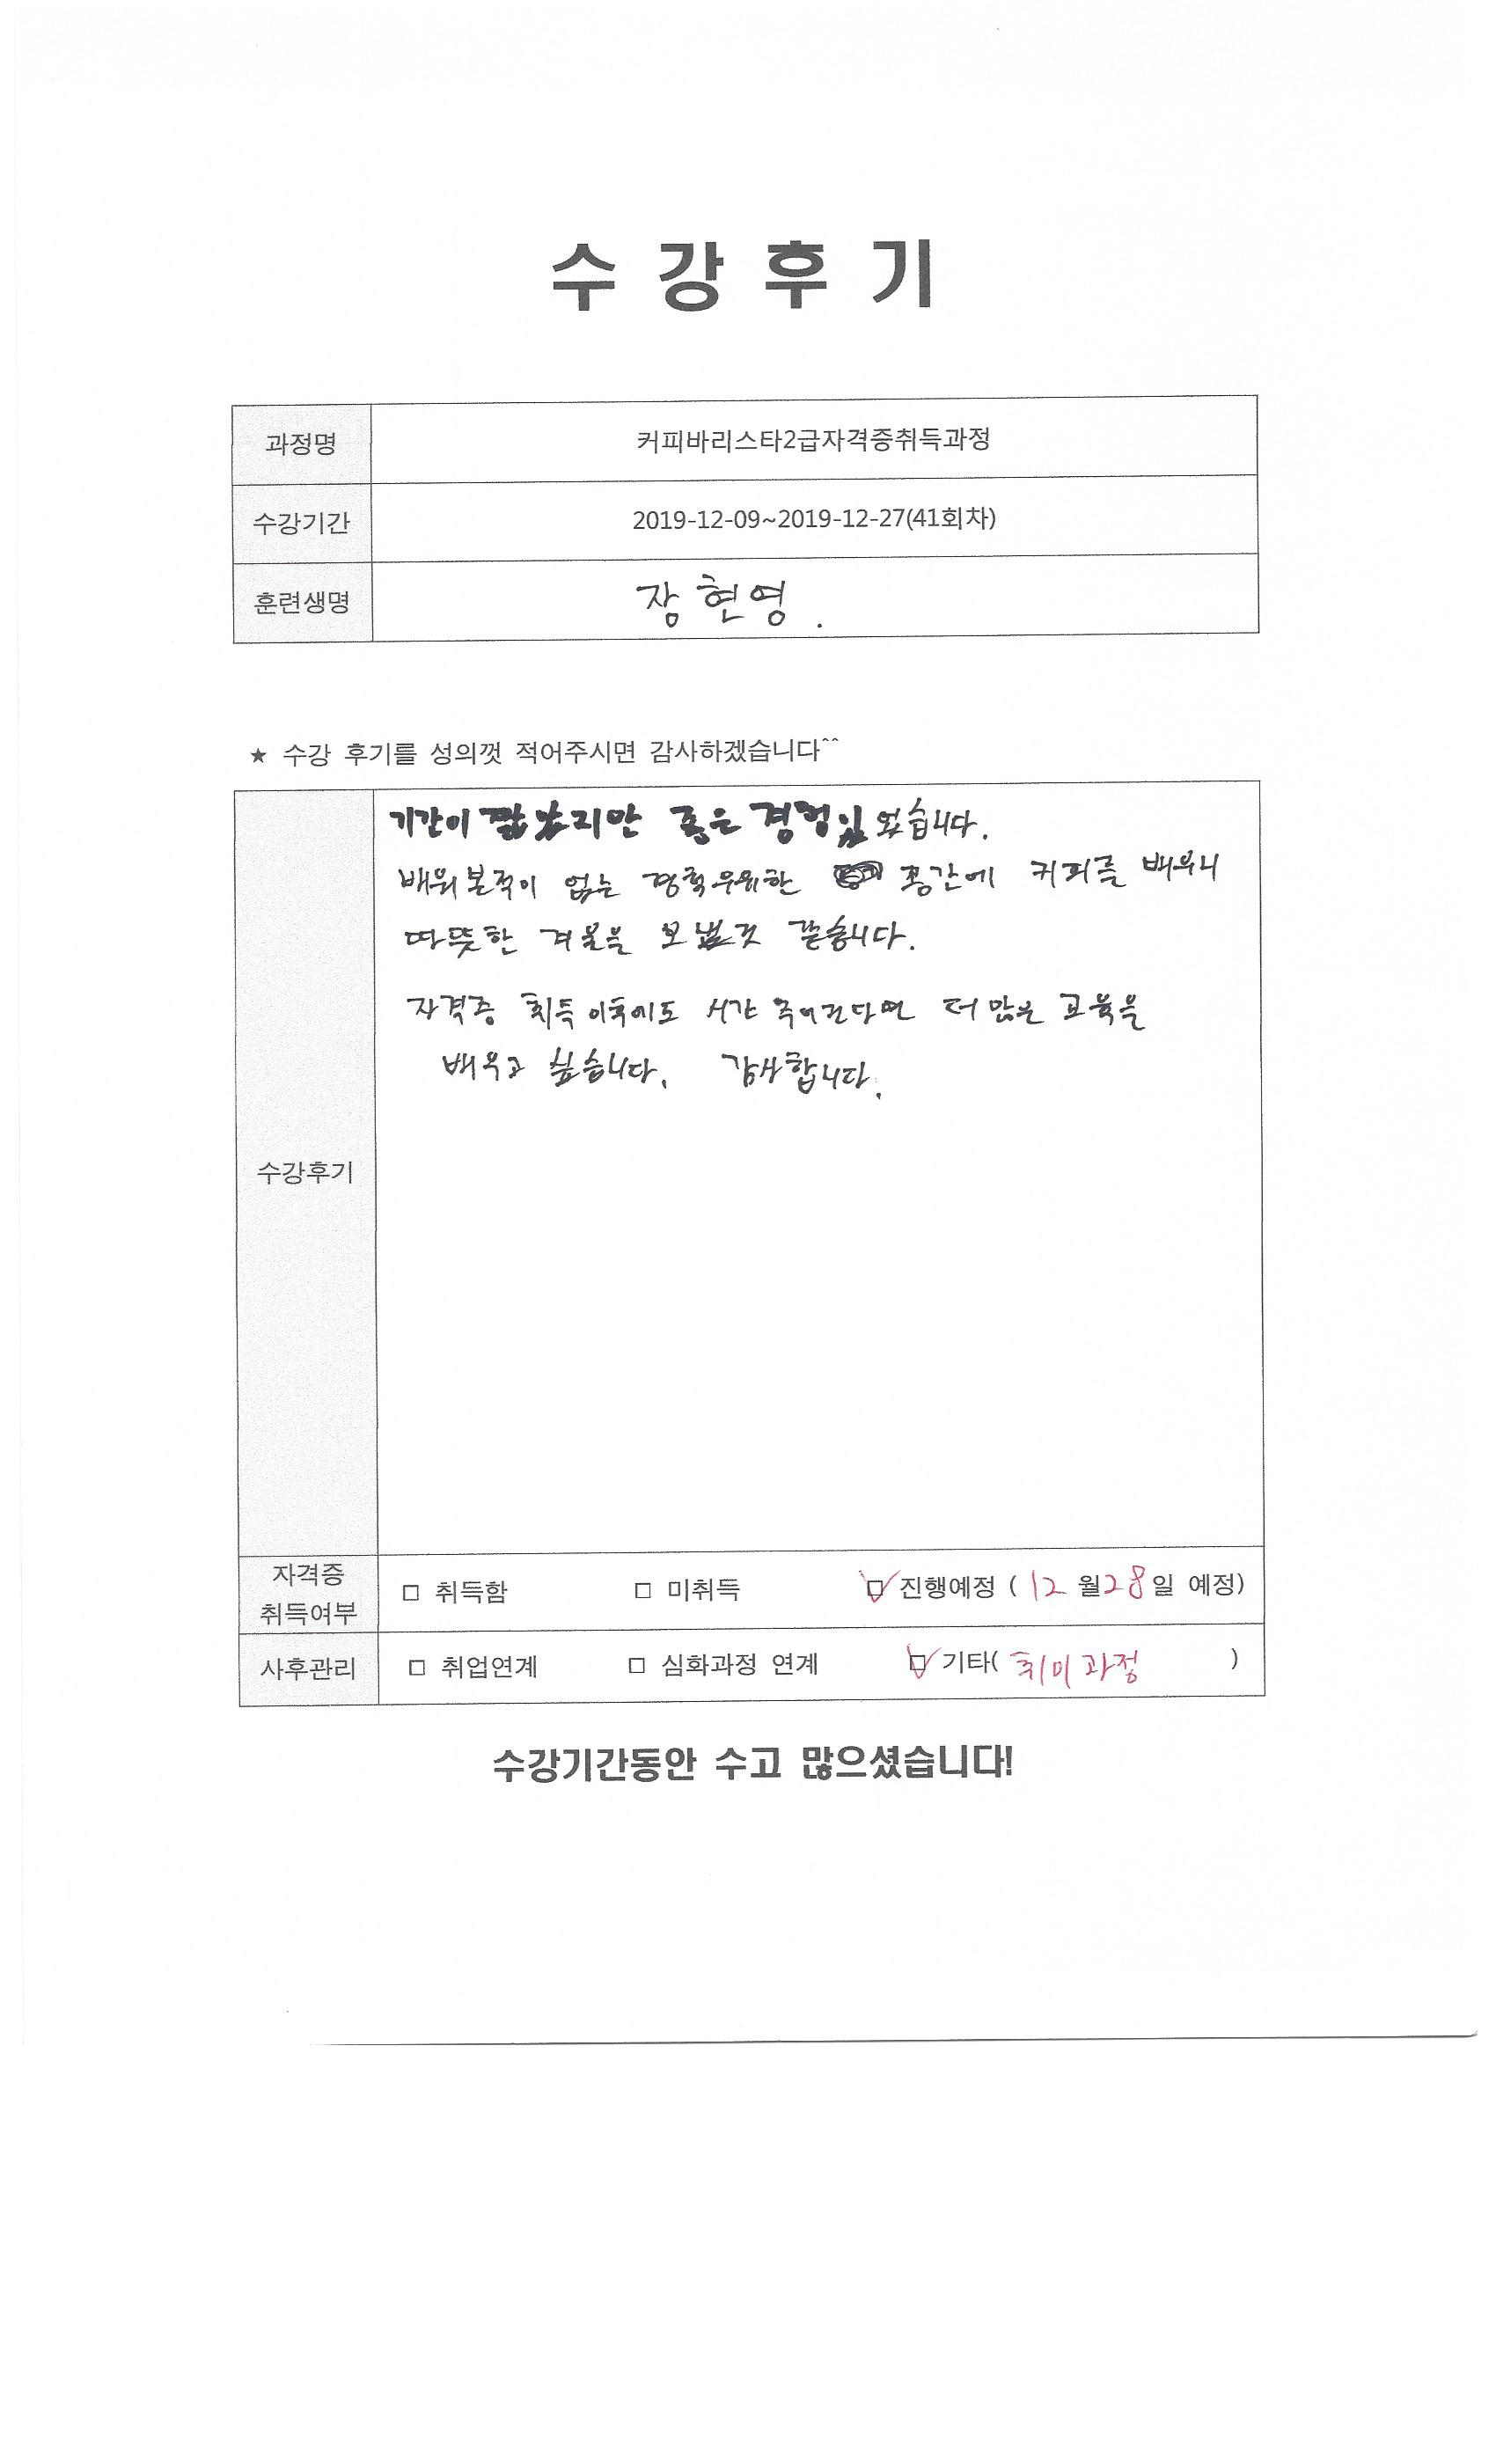 수강후기
과정명 커피바리스타2급자격증취득과정
수강기간 2019-12-09~2019-12-27(41회차)
훈련생명 장현영.
★ 수강 후기를 성의껏 적어주시면 감사하겠습니다^^
기간이 짧았지만 좋은 경험이 었습니다.
배워본적이 없는 커피를 배우니
따뜻한 겨울을 보낸것 같습니다.
자격증 취득 이후에도 시간 주어진다면 더 많은 교육을
배우고 싶습니다. 감사합니다.
수강후기
자격증 취득여부 □ 취득함 □ 미취득 ☑ 진행예정 ( 12 월 28 일 예정)
사후관리 □ 취업연계 □ 심화과정 연계 ☑ 기타( 취미과정 )
수강기간동안 수고 많으셨습니다!